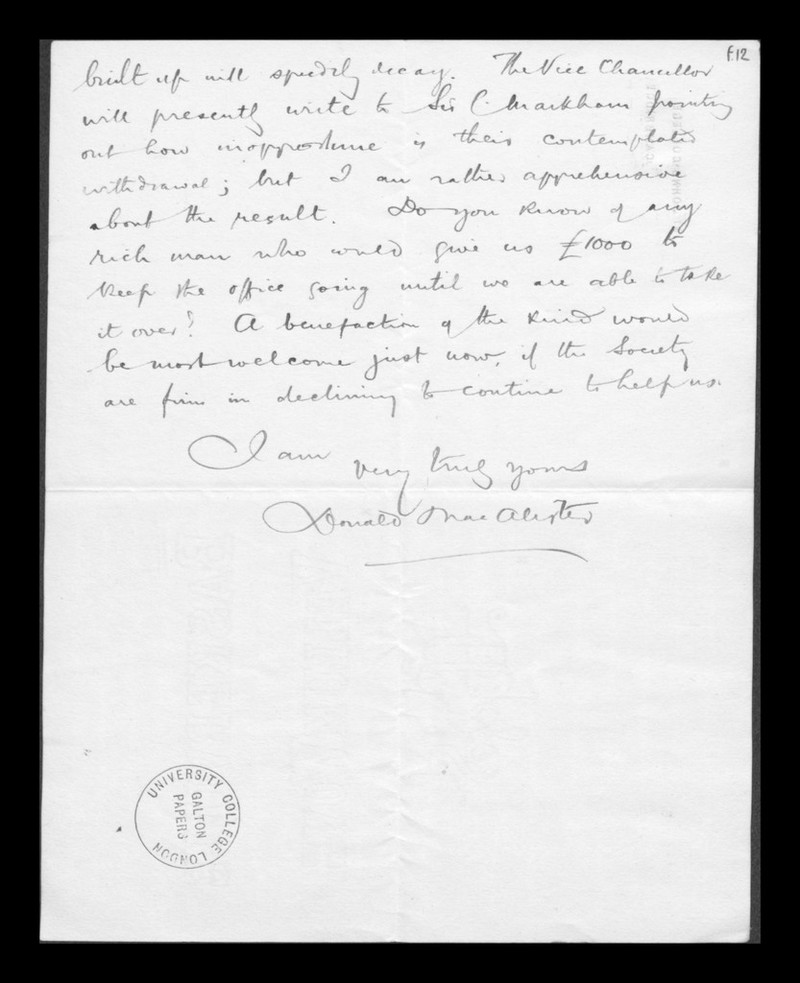 f.12
built up will speedily decay. The Vice Chancellor
will presently write to Sir C. Markham pointing
out how inopportune is their contemplated
withdrawal; but I am rather apprehensive
about the result. Do you know of any
rich man who would give us £1000 to
keep the office going until we are able to take
it over? A benefaction of the kind would
be most welcome just now, if the Society
are firm in declining to continue to help us.
I am
very truly yours
Donald MacAlister
UNIVERSITY COLLEGE LONDON
GALTON
PAPERS